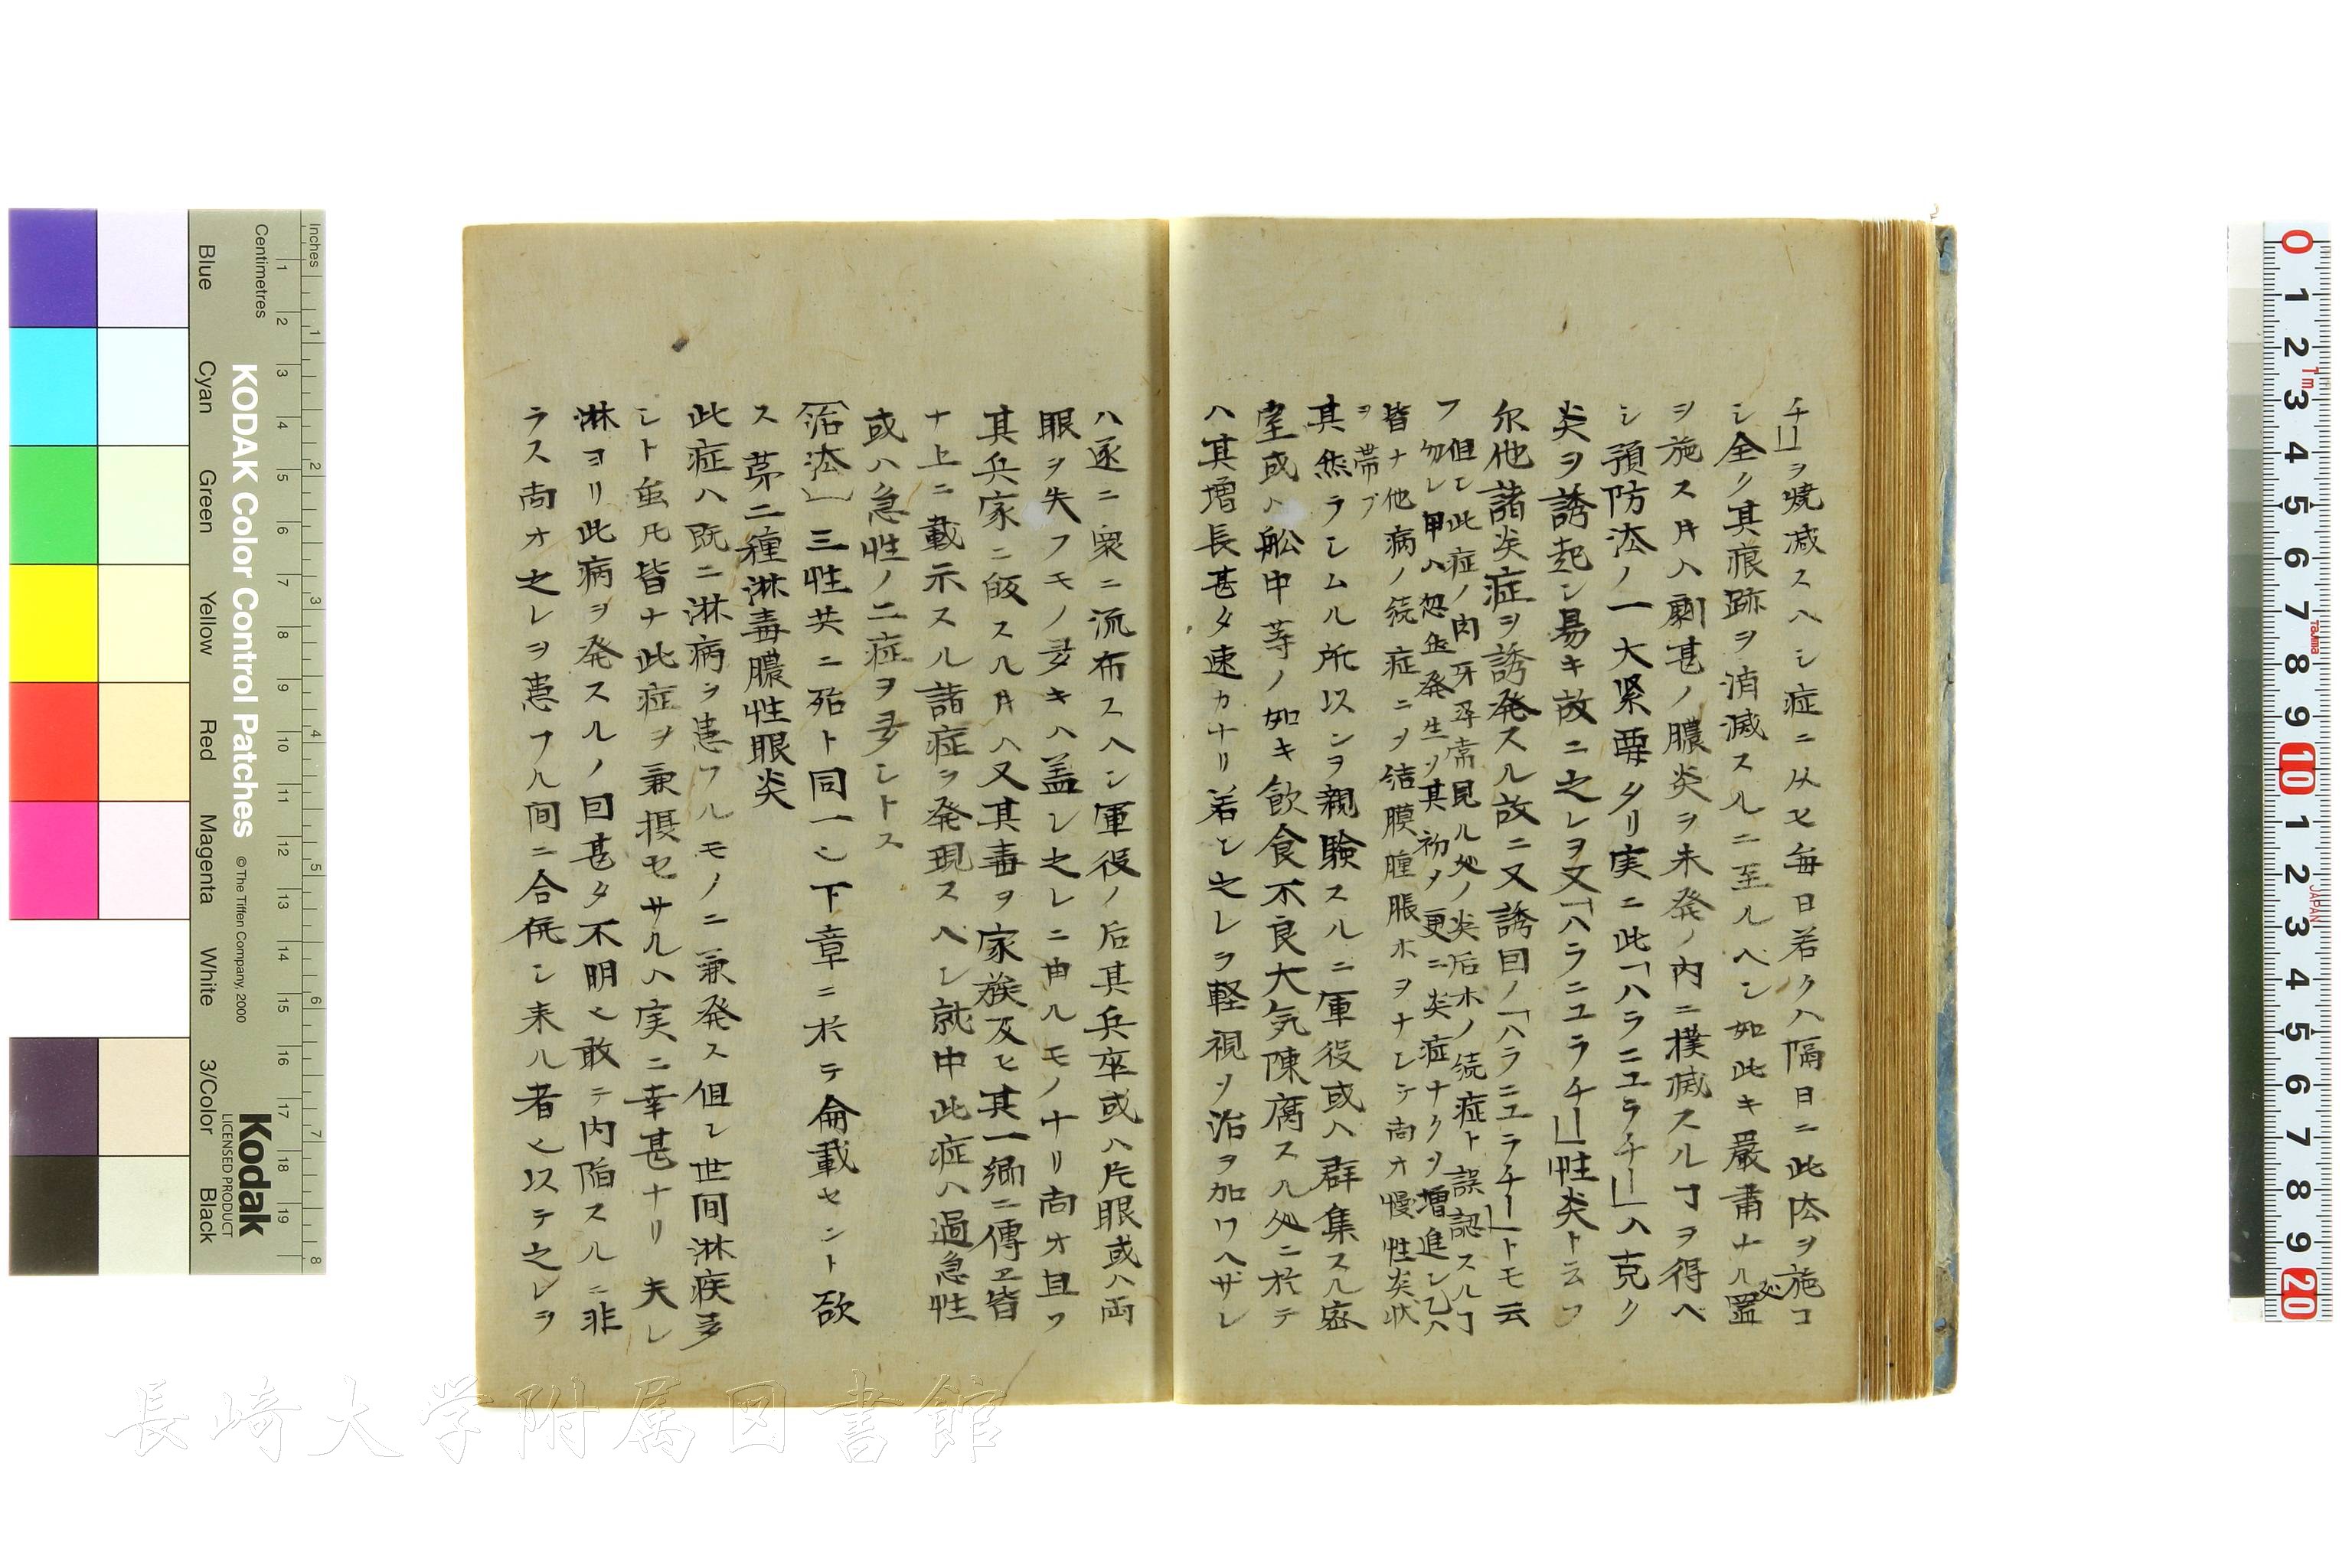 チー」ヲ焼滅スヘシ症ニ从ヒ毎日若クハ隔日ニ此法ヲ施コ
シ全ク其痕跡ヲ消滅スルニ至ルヘシ如此キ嚴肅ナル置
ヲ施ス片ハ劇甚ノ膿炎ヲ未発ノ内ニ撲滅スルヿヲ得ヘ
シ預防法ノ一大緊要タリ実ニ此「ハラニユラチー」ハ克ク
炎ヲ誘起シ易キ故ニ之レヲ又「ハラニユラチー」性炎ト云フ
尓他諸炎症ヲ誘発スル故ニ又誘因ノ「ハラニユラチー」トモ云
フ但シ此症ノ肉牙尋常見ル処ノ炎后ホノ続症ト誤認スルヿ
勿レ甲ハ忽然発生ソ其初メ更ニ炎症ナクソ増進シ乙ハ
皆ナ他病ノ続症ニヲ結膜腫脹ホヲナシテ尚オ慢性炎状
ヲ帯ブ
其然ラシムル所以ンヲ親験スルニ軍役或ハ群集スル密
室或ハ舩中等ノ如キ飲食不良大気陳腐スル処ニ於テ
ハ其増長甚タ速カナリ若シ之レヲ軽視ソ治ヲ加ワヘザレ
ハ逐ニ衆ニ流布スヘシ軍役ノ后其兵卒或ハ片眼或ハ両
眼ヲ失フモノ多キハ盖シ之レニ由ルモノナリ尚オ且ツ
其兵家ニ皈スル片ハ又其毒ヲ家族及ヒ其一郷ニ傳ヱ皆
ナ上ニ載示スル諸症ヲ発現スヘシ就中此症ハ過急性
或ハ急性ノ二症ヲ多シトス
「治法」三性共ニ殆ト同一シ下章ニ於テ侖載セント欲
ス苐二種淋毒膿性眼炎
此症ハ既ニ淋病ヲ患フルモノニ兼発ス但シ世间淋疾多
シト虽凡皆ナ此症ヲ兼摂セサルハ実ニ幸甚ナリ夫レ
淋ヨリ此病ヲ発スルノ囙甚タ不明シ敢テ内陷スルニ非
ラス尚オ之レヲ患フル间ニ合併シ来ル者シ以テ之レヲ
KODAK Color Control Patches
© The Tiffen Company, 2000
Kodak
LICENSED PRODUCT
Inches
Centimetres
Blue
Cyan
Green
Yellow
Red
Magenta
White
3/Color
Black
長崎大学附属図書館